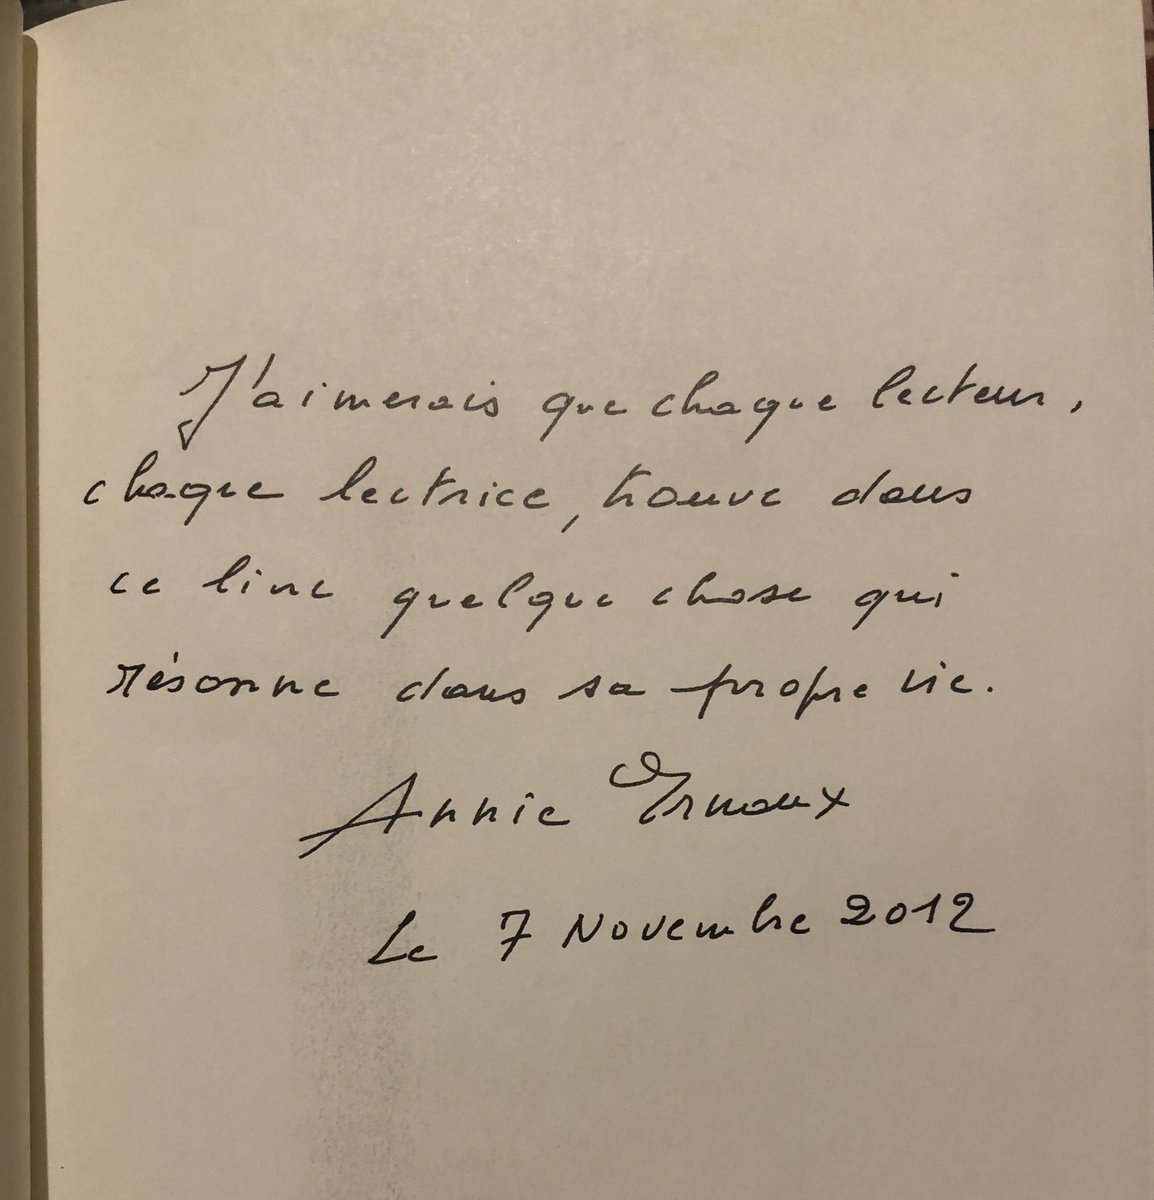 J'aimerais que chaque lecteur,
chaque lectrice, trouve dans
ce livre quelque chose qui
résonne dans sa propre vie.
Annie Ernaux
Le 7 Novembre 2012